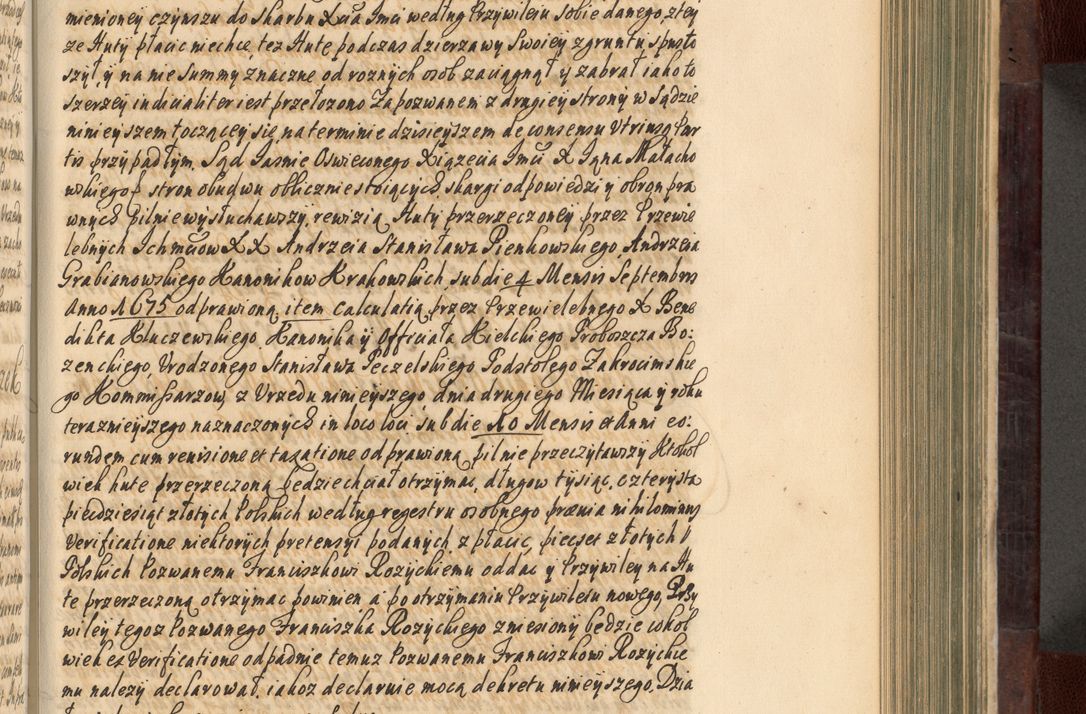 mienioney czynszu do skarbu Xcia Jmci według Przywileiu sobie danego, z tey
ze Huty płacic niechce, tez Hutę podczas dzierzawy swoiey z gruntu spusto
szył, y na nie summy znaczne od roznych osob zaciągnął y zabrał iako to
szerzey indicialiter iest przełozono Zapozwanem z drugiey strony w sądzie
ninieyszem toczącey się, na terminie dzisieyszem de consensu Utriusq Par
tis przypadłym. Sąd Jasnie Oswieconego Xiązecia Jmci X Jgna Małacho
wskiego stron obudwu oblicznie stoiących, skargi odpowiedzi y obron pra
wnych pilnie wysłuchawszy, rewizią Huty przerzeczoney przez Przewie
lebnych Jchmciow X X Andrzeia Stanisława Pienkowskiego, Andrzeia
Grabianowskiego Kanonikow Krakowskich, sub die 4 Mensis Septembris
Anno 1675 odprawioną, item calculatią przez Przewielebnego X Bene
dikta Kluczewskiego, Kanonika y Officiała Kielckiego Proboszcza Bo:
zenckiego, Urodzonego Stanisława Peczelskiego Podstolego Zakrocimskie
go Kommissarzow, z Urzedu ninieyszego dnia drugiego Miesiąca y roku
teraznieyszego naznaczonych in loco loci sub die 10 Mensis et Anni eo:
rundem cum reuisione et taxatione odprawioną, pilnie przeczytawszy Ktokol
wiek hute przerzeczoną będzie chciał otrzymac, długow tysiąc, czterysta
piecdziesiąt złotych Polskich według regestru osobnego praevia nihilominus
Verificatione niektorych pretensyi podanych, z płacic, piecset złotych
Polskich Pozwanemu Franciszkowi Rozyckiemu oddac y Przywiley na Hu
te przerzeczoną otrzymac powinien, a po otrzymaniu Przywileiu nowego, Przy
wiley tegoz Pozwanego Franciszka Rozyckiego zniesiony będzie cokol
wiek ex Verificatione odpadnie temuz Pozwanemu Franciszkowi Rozyckie
mu nalezy declarował, iakoz declaruie mocą dekretu ninieyszego. Dzia